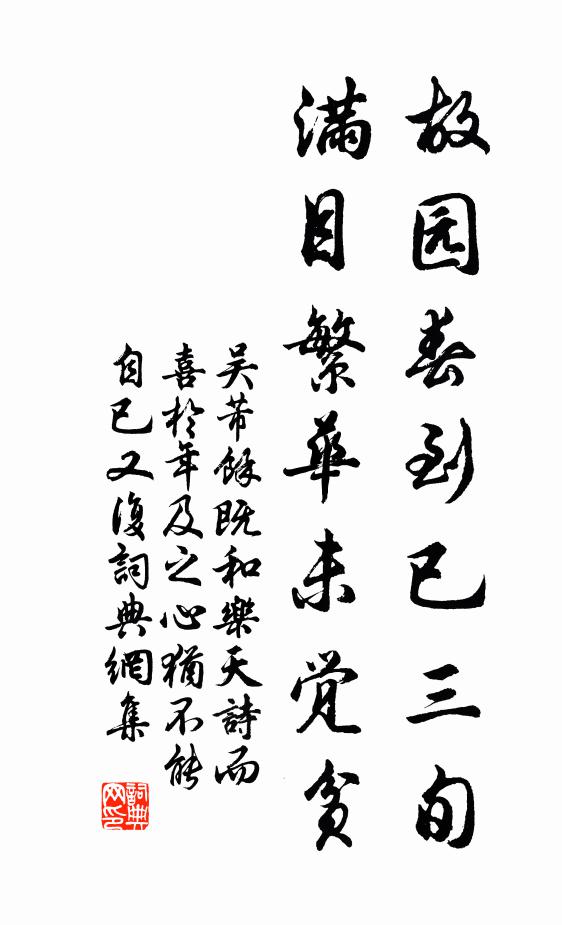 故园春到已三旬
满目繁华未觉贫
吴芾餘既和樂天詩而
喜於年及之心猶不能
自已又復詞典網集
詞典
网印